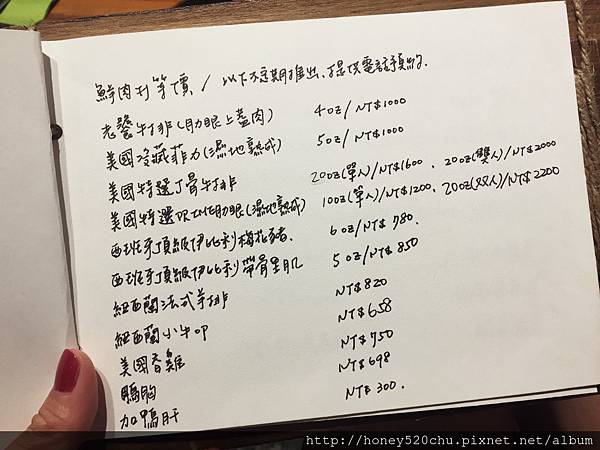 鮮肉到等價 / 以下不定期推出、提供電話預約.
老饕牛排(肋眼上蓋肉) 4oz/NT$1000
美國冷藏菲力(濕地熟成) 5oz/NT$1000
美國特選丁骨牛排 20oz(單人)/NT$1600 . 20oz(雙人)/NT$2000
美國特選 肋眼(濕地熟成) 10oz(單人)/NT$1200. 20oz(双人)/NT$2200
西班牙頂級伊比利梅花豬. 6oz/NT$780.
西班牙頂級伊比利帶骨里肌 5oz/NT$850
紐西蘭法式羊排 NT$820
紐西蘭小牛 NT$658
美國春雞 NT$750
鴨胸 NT$698
加鴨肝 NT$300.
http://honey520chu.pixnet.net/album